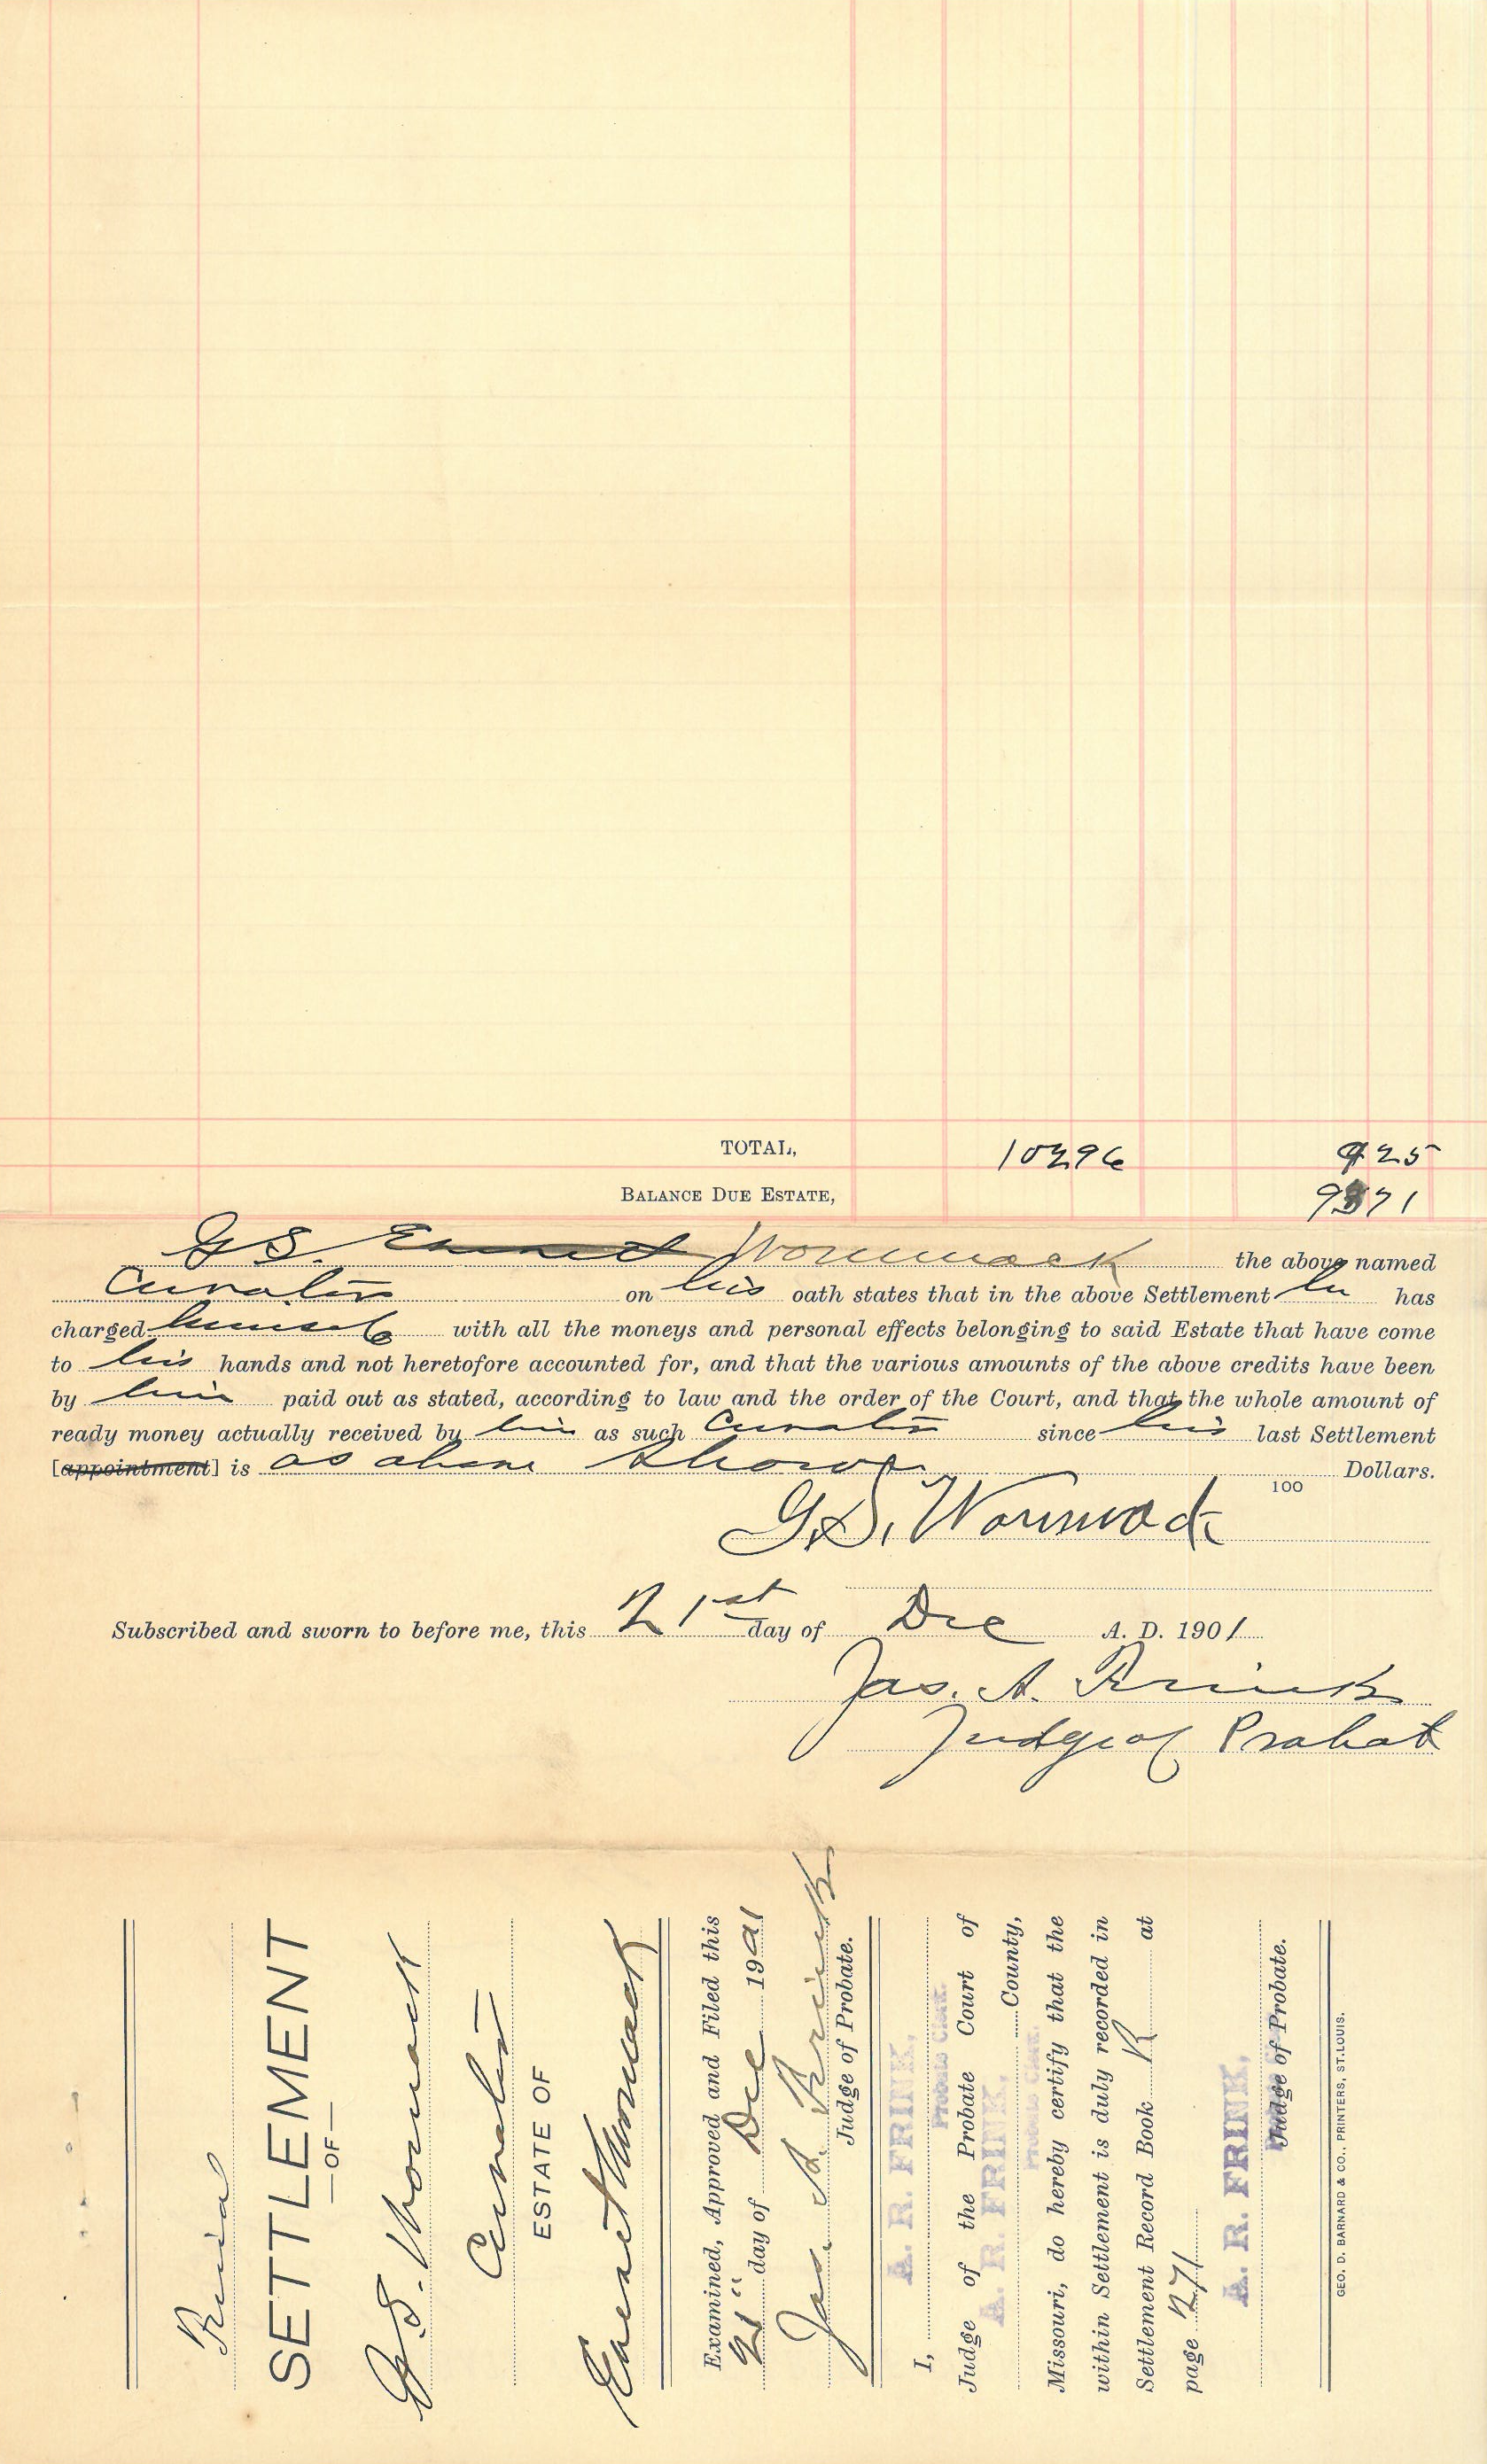 TOTAL, 10296 925
BALANCE DUE ESTATE, 9371
G S. Emmett Wommack the above named
Curator on his oath states that in the above Settlement he has
charged himself with all the moneys and personal effects belonging to said Estate that have come
to his hands and not heretofore accounted for, and that the various amounts of the above credits have been
by him paid out as stated, according to law and the order of the Court, and that the whole amount of
ready money actually received by him as such Curator since his last Settlement
[appointment] is as above shown Dollars.
100
G.S. Wommack
Subscribed and sworn to before me, this 21st day of Dec A. D. 1901
Jas. A. Frink
Judge of Probat
Final
SETTLEMENT
—OF—
G.S. Wommack
Curator
ESTATE OF
Emmet Wommack
Examined, Approved and Filed this
21" day of Dec 1901
Jas. A. Frink
Judge of Probate.
I, A. R. FRINK,
Probate Clerk.
Judge of the Probate Court of
A. R. FRINK, County,
Probate Clerk.
Missouri, do hereby certify that the
within Settlement is duly recorded in
Settlement Record Book K at
page 271
A. R. FRINK,
Judge of Probate.
GEO. D. BARNARD & CO., PRINTERS, ST. LOUIS.